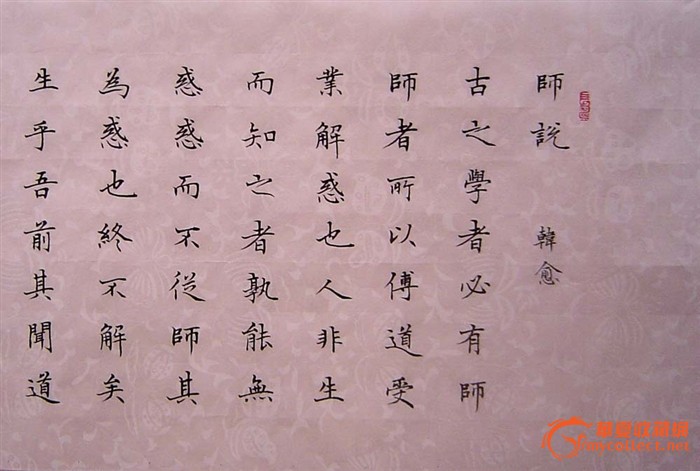 師說 韓愈
古之學者必有師
師者所以傳道受
業解惑也人非生
而知之者孰能無
惑惑而不從師其
為惑也終不解矣
生乎吾前其聞道
華夏收藏網
mycollect.net